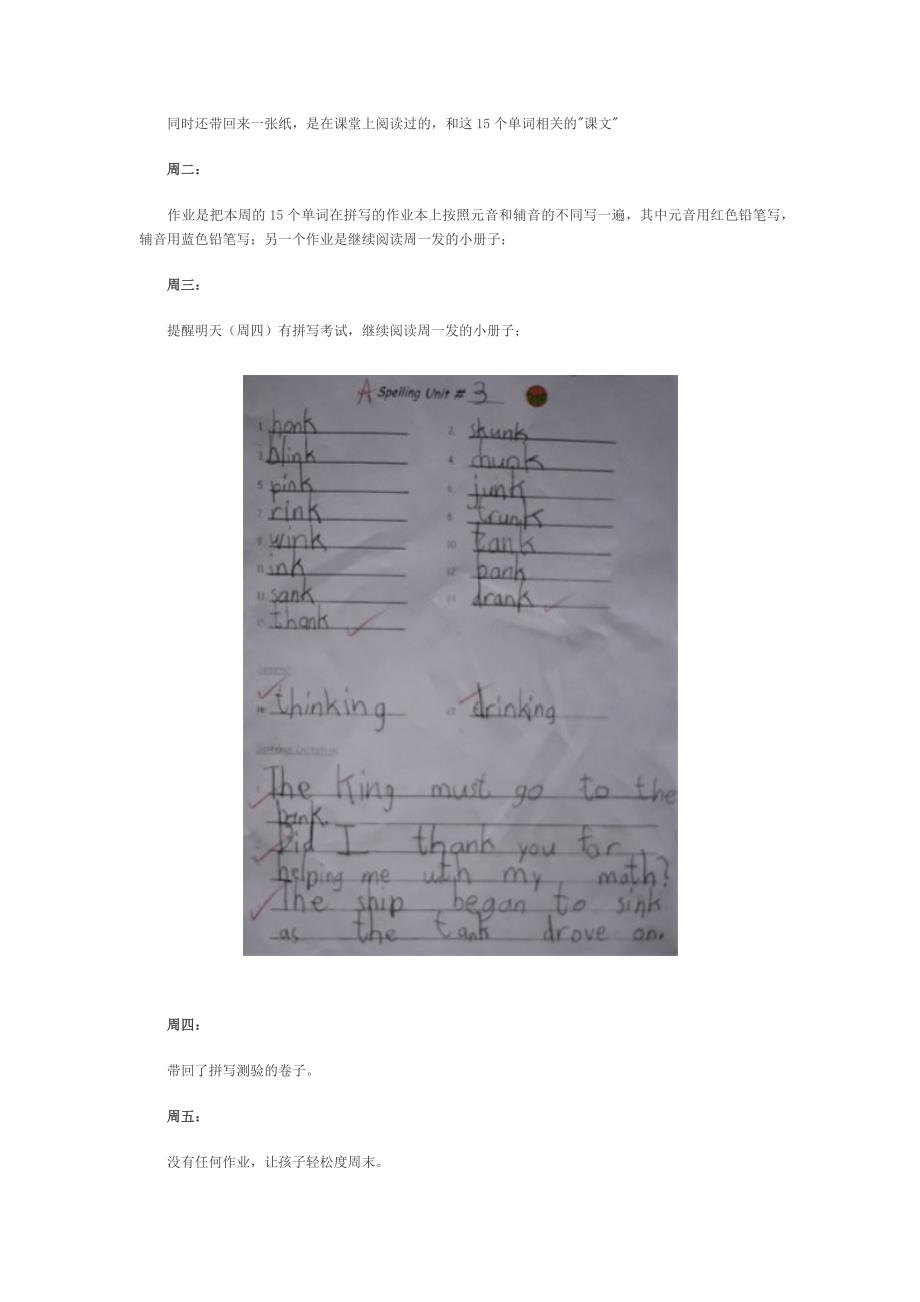 同时还带回来一张纸，是在课堂上阅读过的，和这 15 个单词相关的"课文"
周二：
作业是把本周的 15 个单词在拼写的作业本上按照元音和辅音的不同写一遍，其中元音用红色铅笔写，
辅音用蓝色铅笔写；另一个作业是继续阅读周一发的小册子；
周三：
提醒明天（周四）有拼写考试，继续阅读周一发的小册子；
A Spelling Unit # 3
1. honk 2. skunk
3. blink 4. chunk
5. pink 6. junk
7. rink 8. trunk
9. wink 10. tank
11. ink 12. bank
13. sank 14. drank
15. thank
16. thinking 17. drinking
Sentence Dictation
1. The King must go to the
bank.
2. Did I thank you for
helping me with my math?
The ship began to sink
as the tank drove on.
周四：
带回了拼写测验的卷子。
周五：
没有任何作业，让孩子轻松度周末。